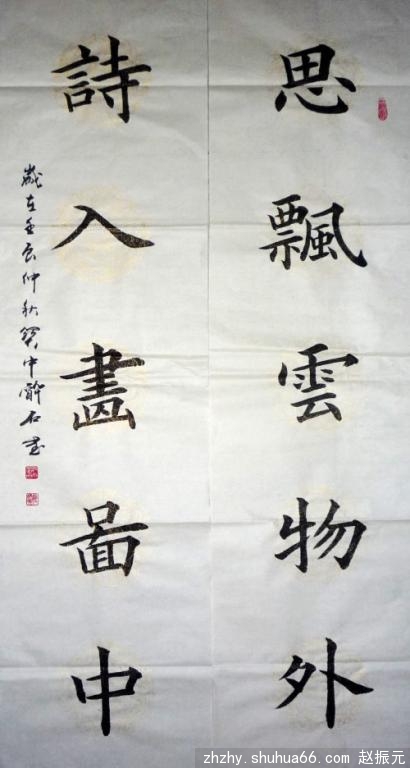 思飄雲物外
詩入畫啚中
歲在壬辰仲秋寶中醉石書
zhzhy.shuhua66.com 赵振元